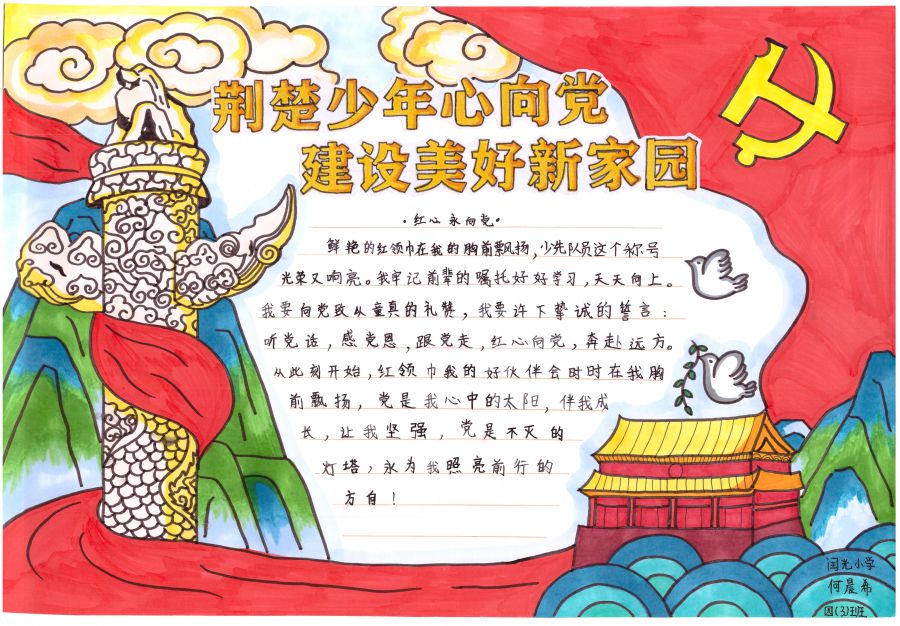 荆楚少年心向党
建设美好新家园
·红心永向党·
鲜艳的红领巾在我的胸前飘扬，少先队员这个称号
光荣又响亮。我牢记前辈的嘱托好好学习，天天向上。
我要向党致从童真的礼赞，我要许下挚诚的誓言：
听党话，感党恩，跟党走，红心向党，奔赴远方。
从此刻开始，红领巾我的好伙伴会时时在我胸
前飘扬，党是我心中的太阳，伴我成
长，让我坚强，党是不灭的
灯塔，永为我照亮前行的
方自！
闫光小学
何晨希
四(3)班